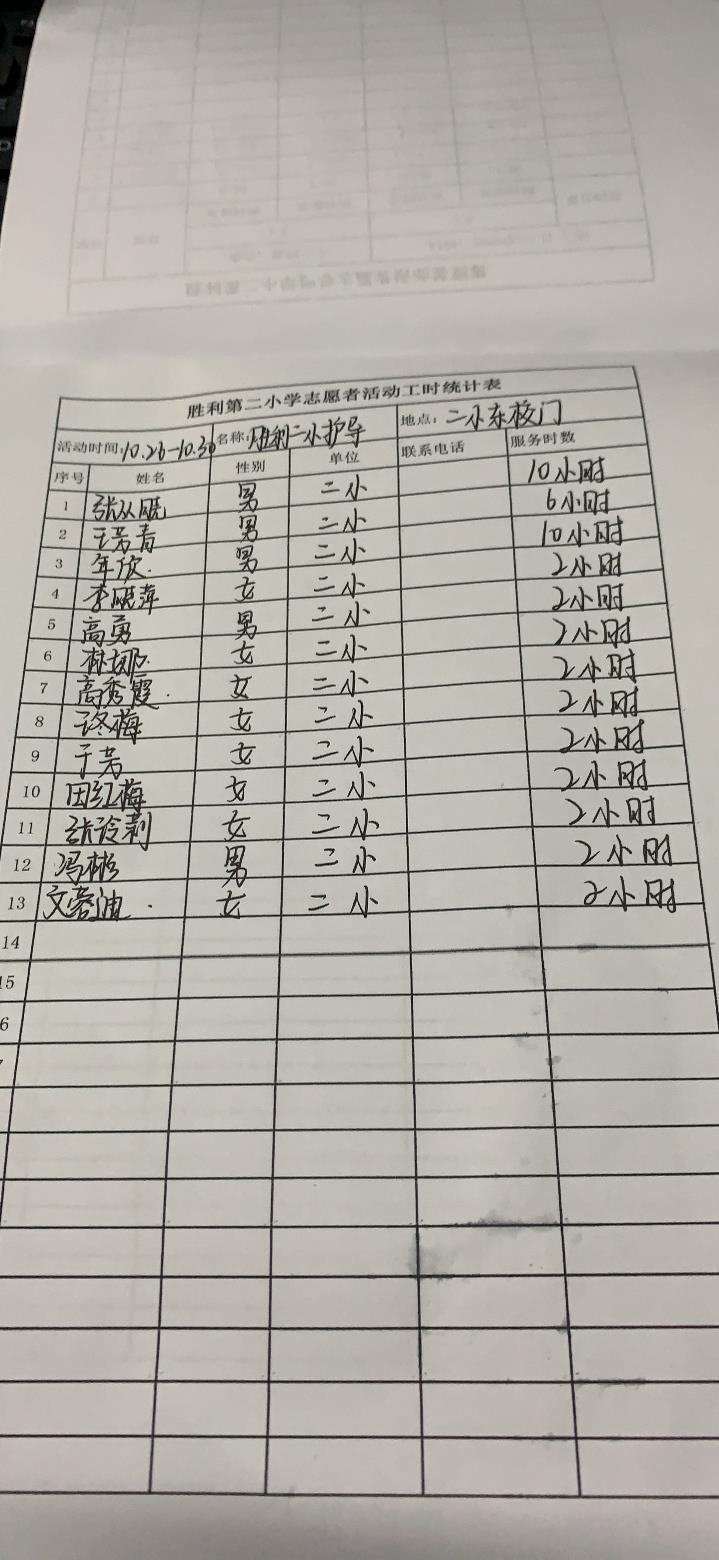 胜利第二小学志愿者活动工时统计表
活动时间:10.26-10.30 名称:胜利二小护导 地点:二小东校门
序号 姓名 性别 单位 联系电话 服务时数
1 男 二小 10小时
2 王芳青 男 二小 6小时
3 年欣 男 二小 10小时
4 李晓萍 女 二小 2小时
5 高勇 男 二小 2小时
6 林娜 女 二小 2小时
7 高秀霞 女 二小 2小时
8 女 二小 2小时
9 于芳 女 二小 2小时
10 田红梅 女 二小 2小时
11 张玲莉 女 二小 2小时
12 冯彬 男 二小 2小时
13 女 二小 2小时
14
15
6